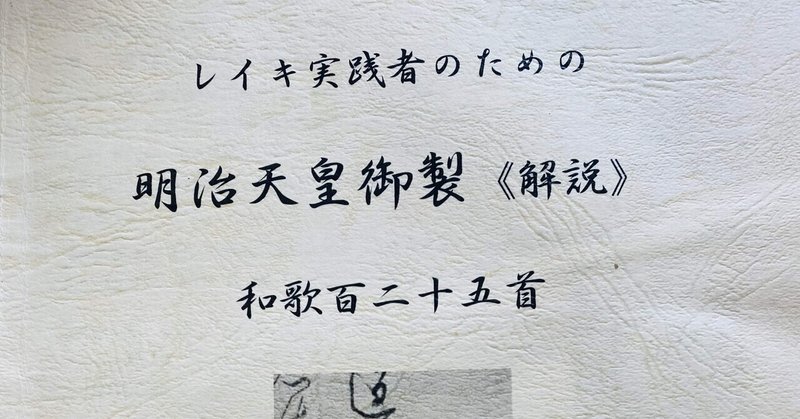 レイキ実践者のための
明治天皇御製《解説》
和歌百二十五首